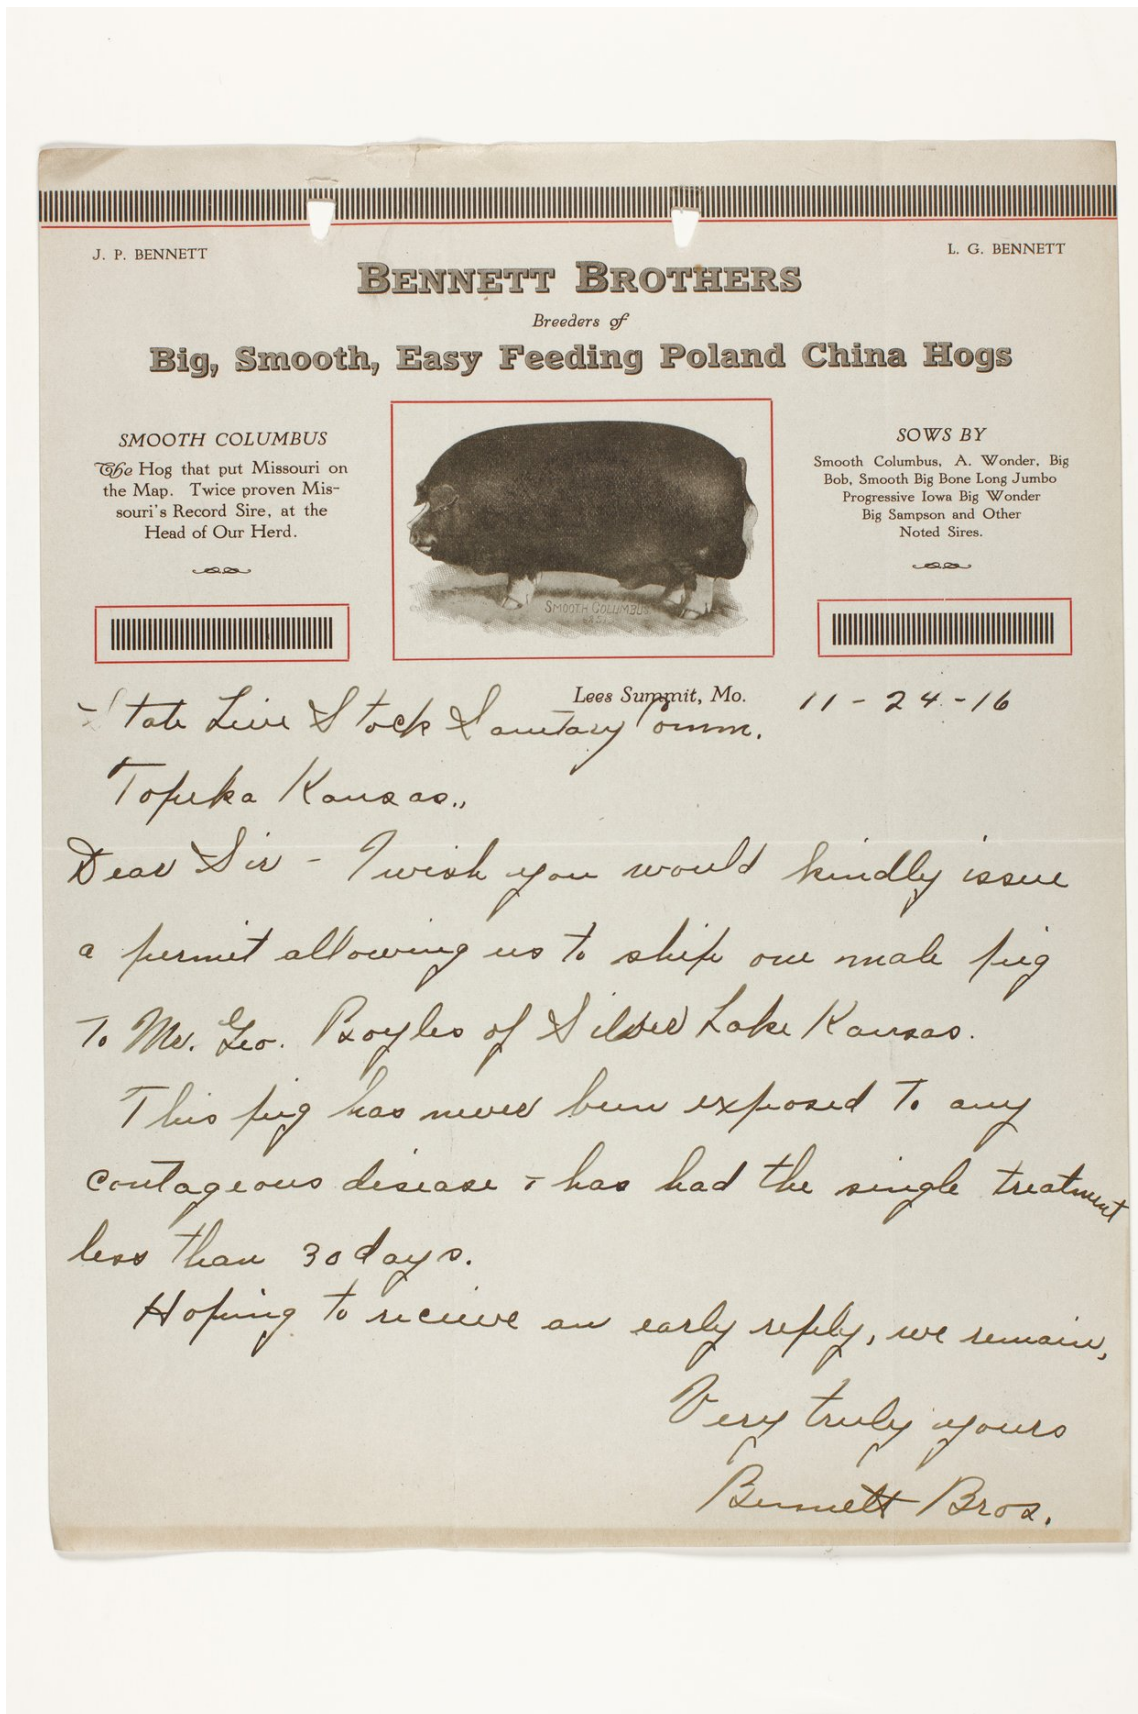 J. P. BENNETT
L. G. BENNETT
BENNETT BROTHERS
Breeders of
Big, Smooth, Easy Feeding Poland China Hogs
SMOOTH COLUMBUS
The Hog that put Missouri on
the Map. Twice proven Mis-
souri's Record Sire, at the
Head of Our Herd.
SMOOTH COLUMBUS
SOWS BY
Smooth Columbus, A. Wonder, Big
Bob, Smooth Big Bone Long Jumbo
Progressive Iowa Big Wonder
Big Sampson and Other
Noted Sires.
Lees Summit, Mo. 11-24-16
State Live Stock Sanitary Comm.
Topeka Kansas.,
Dear Sir - I wish you would kindly issue
a permit allowing us to ship one male pig
to Mr. Geo. Boyles of Silver Lake Kansas.
This pig has never been exposed to any
contageous disease + has had the single treatment
less than 30 days.
Hoping to recieve an early reply, we remain,
Very truly yours
Bennett Bros.